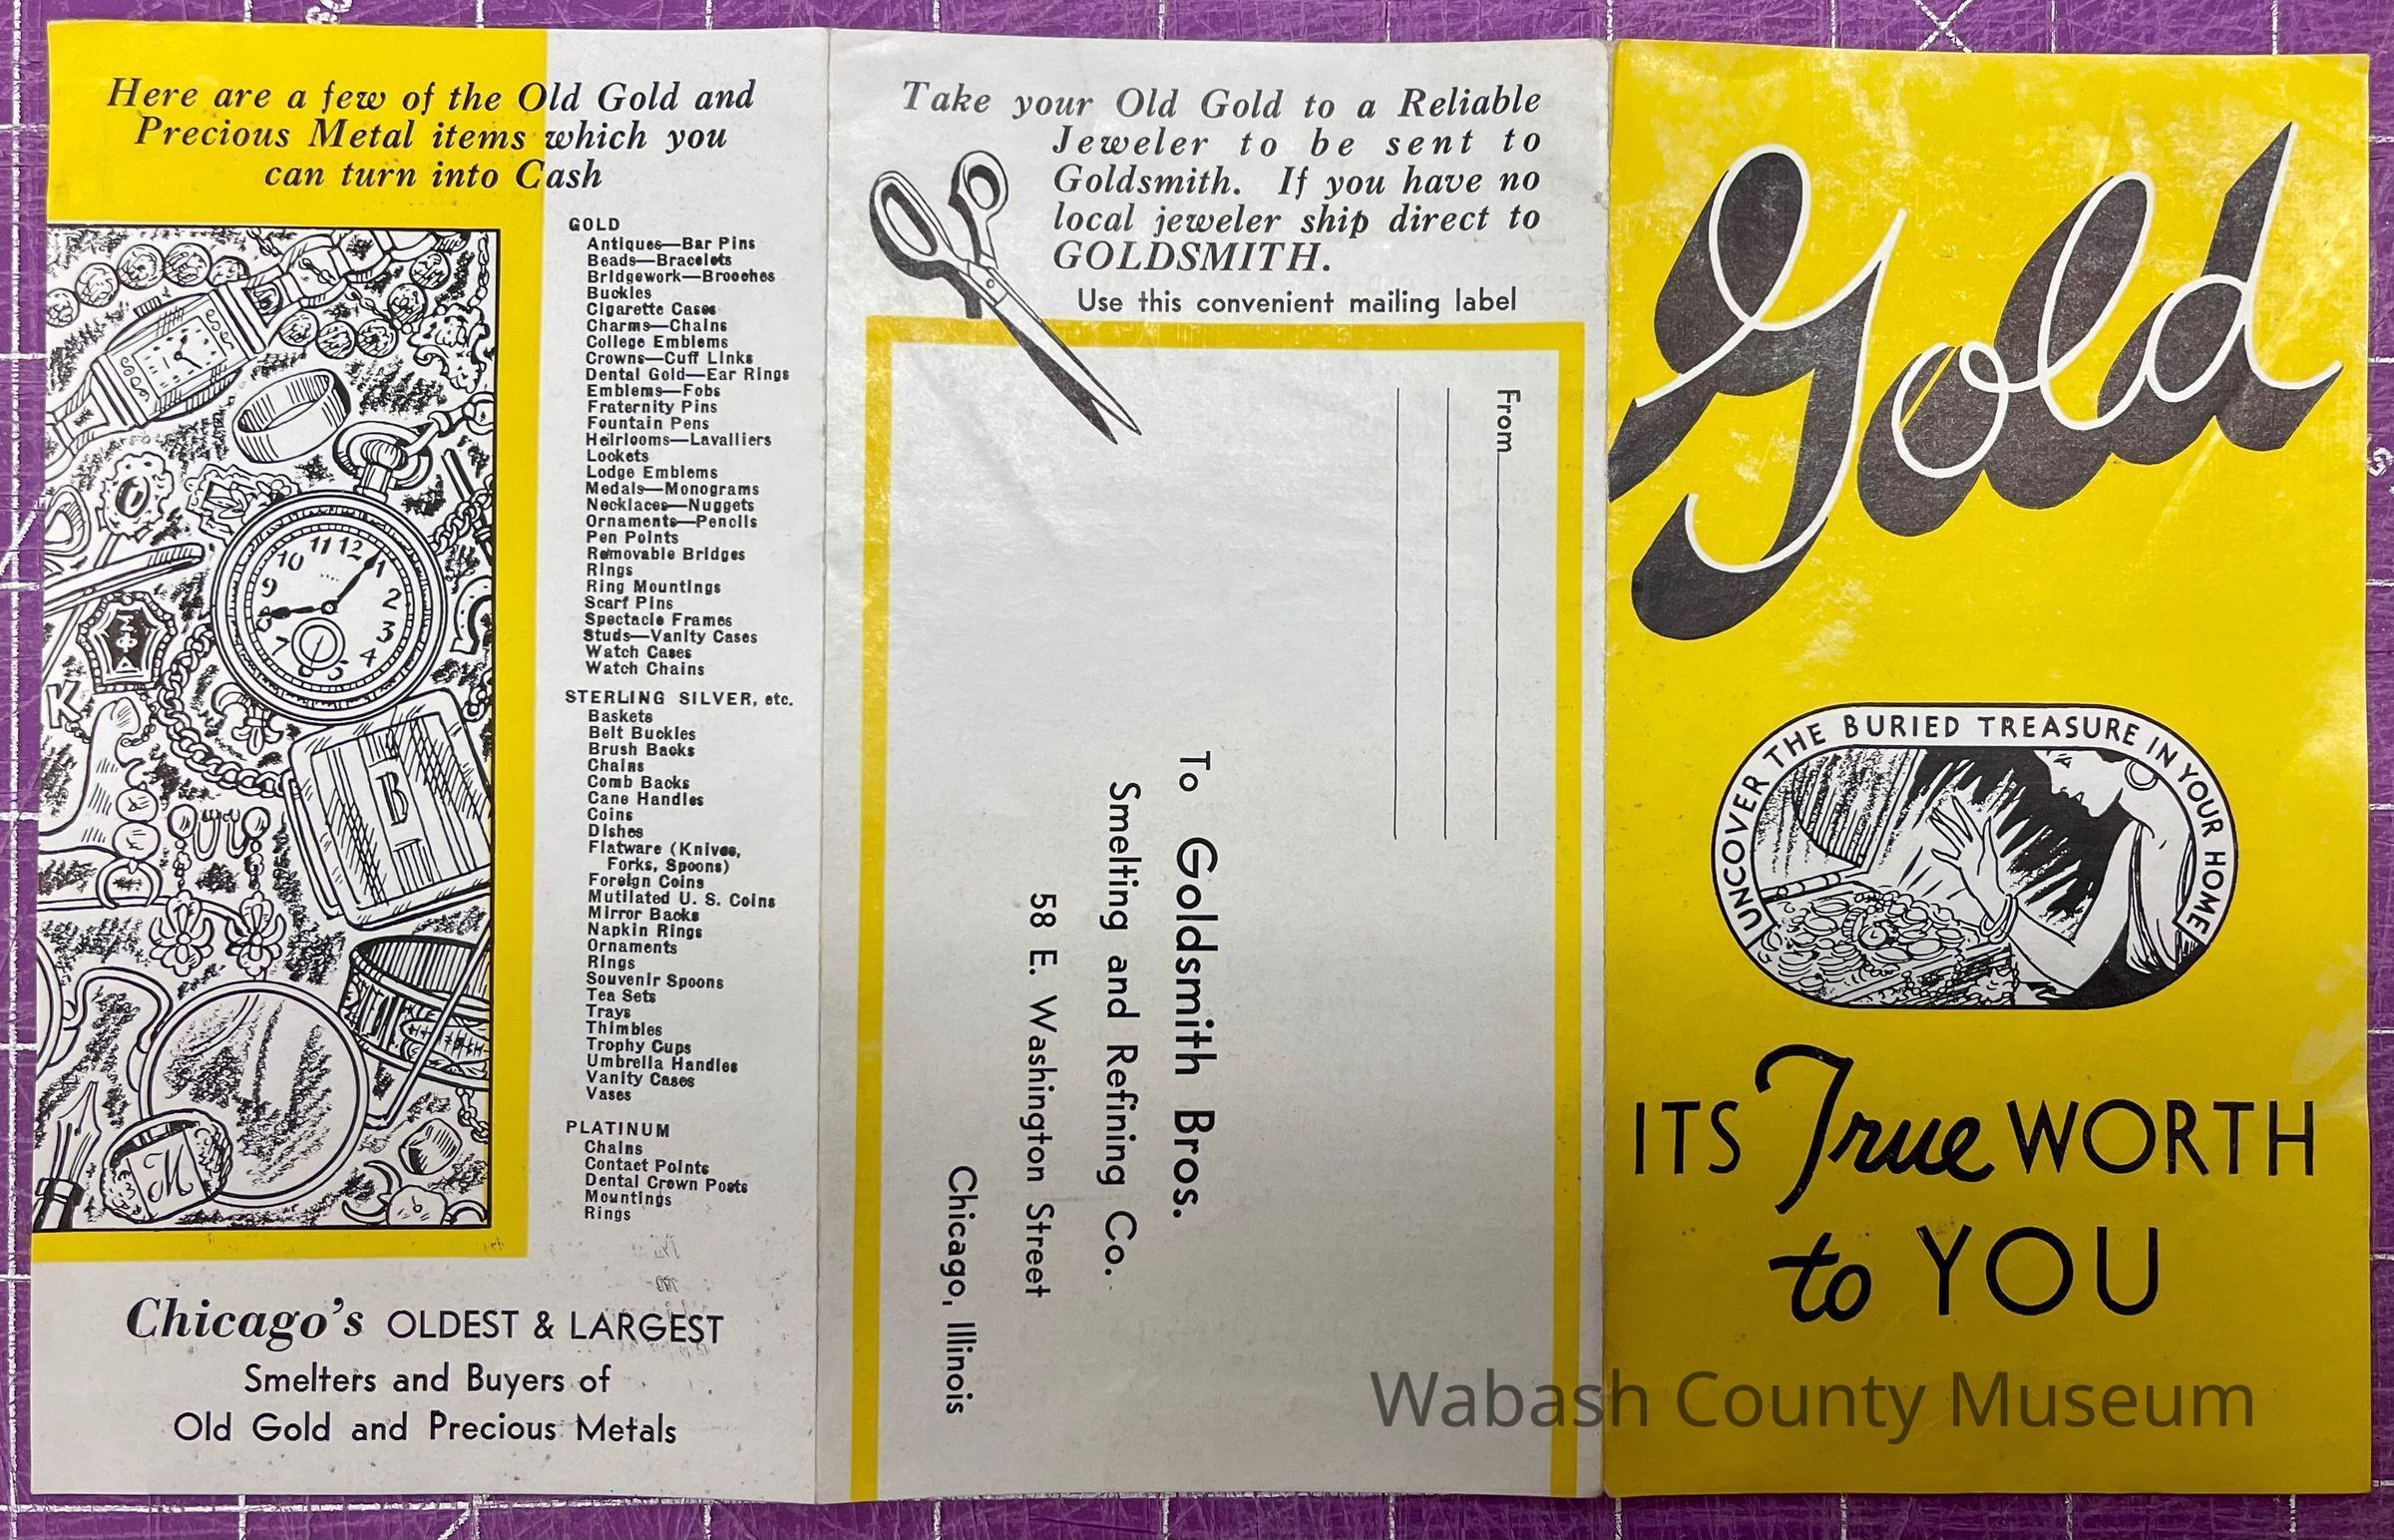 Here are a few of the Old Gold and
Precious Metal items which you
can turn into Cash
GOLD
Antiques—Bar Pins
Beads—Bracelets
Bridgework—Brooches
Buckles
Cigarette Cases
Charms—Chains
College Emblems
Crowns—Cuff Links
Dental Gold—Ear Rings
Emblems—Fobs
Fraternity Pins
Fountain Pens
Heirlooms—Lavalliers
Lockets
Lodge Emblems
Medals—Monograms
Necklaces—Nuggets
Ornaments—Pencils
Pen Points
Removable Bridges
Rings
Ring Mountings
Scarf Pins
Spectacle Frames
Studs—Vanity Cases
Watch Cases
Watch Chains
STERLING SILVER, etc.
Baskets
Belt Buckles
Brush Backs
Chains
Comb Backs
Cane Handles
Coins
Dishes
Flatware (Knives,
Forks, Spoons)
Foreign Coins
Mutilated U. S. Coins
Mirror Backs
Napkin Rings
Ornaments
Rings
Souvenir Spoons
Tea Sets
Trays
Thimbles
Trophy Cups
Umbrella Handles
Vanity Cases
Vases
PLATINUM
Chains
Contact Points
Dental Crown Posts
Mountings
Rings
11 12 1
10 2
9 3
8 4
7 5
ΣΦΔ
K
B
M
Chicago's OLDEST & LARGEST
Smelters and Buyers of
Old Gold and Precious Metals
Take your Old Gold to a Reliable
Jeweler to be sent to
Goldsmith. If you have no
local jeweler ship direct to
GOLDSMITH.
Use this convenient mailing label
From
To Goldsmith Bros.
Smelting and Refining Co.
58 E. Washington Street
Chicago, Illinois
Gold
UNCOVER THE BURIED TREASURE IN YOUR HOME
ITS True WORTH
to YOU
Wabash County Museum